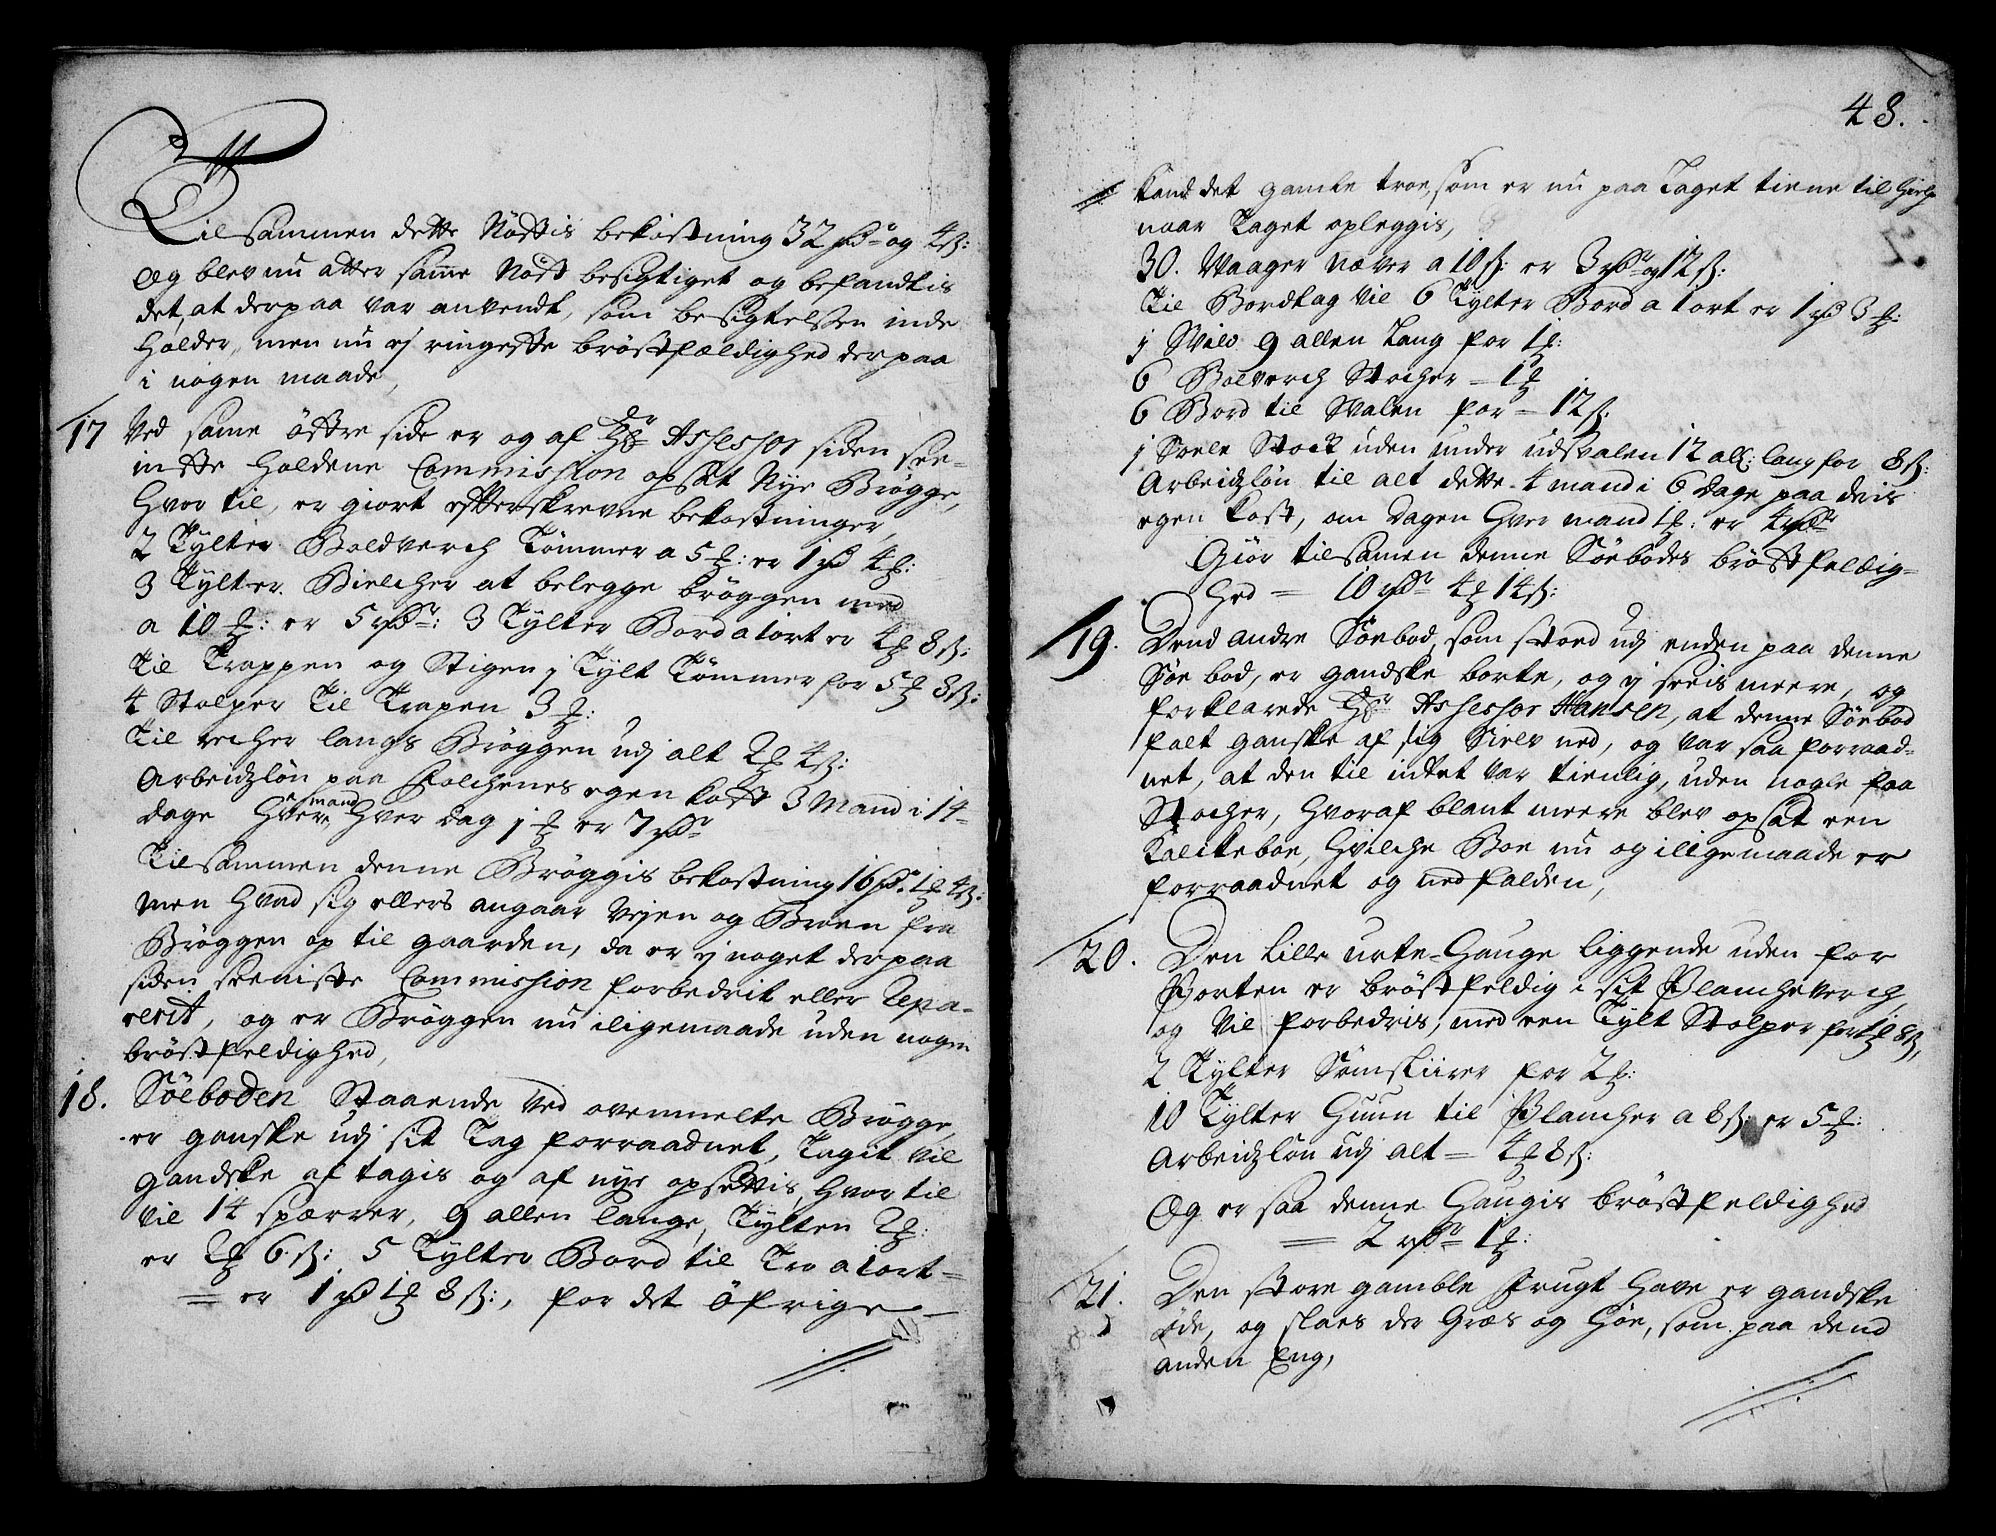 Tilsammen dette Nøstis bekostning 32 rdr og 4 s:
Og blev nu atter samme Nøst besigtiget og befandtis
det, at derpaa var anvendt, som besigtelsen inde
holder, men nu ej ringeste brøstfældighed derpaa
i nogen maade,
17 Ved same østre side er og af Hr Assessor siden see-
iniste holdene Commission opsat Nye Brøgge,
hvor til, er giort efterskrevne bekostninger,
2 Tylter Boldverch Tømmer a 5 ort: er 1 rd 4 ort:
3 Tylter Bielcher at belegge brøggen med
a 10 ort: er 5 rdr: 3 Tylter Bord a 1 ort er 4 ort 8 s:
Til Trappen og Stigen j Tylt Tømmer for 5 ort 8 s:
4 Stolper Til Trapen 3 ort:
Til recher langs Brøggen udj alt 2 ort 4 s:
Arbeidzløn paa folchenes egen kost 3 Mand i 14
dage hver mand hver dag j ort er 7 rdr
Tilsammen denne Brøggis bekostning 16 rdr 1 ort 4 s:
men hvad sig ellers angaar Vejen og Broen fra
Brøggen op til gaarden, da er ej noget derpaa
siden seeniste Commission forbedrit eller Repa-
rerit, og er Brøggen nu iligemaade uden nogen
brøstfeldighed,
18. Søeboden Staaende ved ovenmelte Brøgge,
er ganske udj sit Tag forraadnet, Taget vil
gandske af tagis og af nye opsettis, hvortil
vil 14 spærrer, 9 allen lange, Tylten 2 ort:
er 2 ort 6 s: 5 Tylter Bord til Tro a 1 ort
= er 1 rd 1 ort 8 s:, for det øfrige
48.
kand det gamle troe, som er nu paa Taget tiene til hielp
naar Taget opleggis,
30. Vaager Næver a 10 s: er 3 rdr og 12 s:
Til Bordtag vil 6 Tylter Bord a 1 ort er 1 rd 3 ort:
j Svil 9 allen Lang for 1 ort:
6 Bolverch Stocher = 1 ort
6 Bord til Svalen for = 12 s:
j Svele Stock uden under udsvalen 12 all: lang for 8 s:
Arbeidzløn til alt dette 4 mand i 6 dage paa deris
egen kost, om dagen hver mand 1 ort: er 4 rdr
Giør tilsamen denne Søebodes brøstfeldig-
hed = 10 rdr 4 ort 14 s:
19. Dend andre Søebod, som stoed udj enden paa denne
Søe bod, er gandske borte, og ej seeis meere, og
forklarede Hr Assessor Hansen, at denne Søebod
falt ganske af sig Sielv ned, og var saa forraad-
net, at den til intet var tienlig, uden nogle faa
Stocher, hvoraf blant meere blev opsat een
Kalckeboe, hvilche Boe nu og iligemaade er
forraadnet og nedfalden,
20. Den lille urte-Hauge liggende uden for
Porten er brøstfeldig i sit Plancheverch,
og vil forbedris, med een Tylt Stolper for 1 ort 8 s,
2 Tylter Sømskiirer for 2 ort:
10 Tylter Huun til Plancher a 8 s: er 5 ort:
Arbeidzløn udj alt = 4 ort 8 s:
Og er saa denne Haugis brøstfeldighed
= 2 rdr 1 ort:
21. Den store gamble Frugt Have er gandske
øde, og slaes der Græs og Høe, som paa dend
anden Eng,